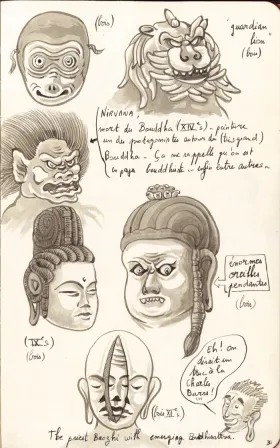 (bois)
"guardian"
lion
(bois)
NIRVANA,
mort du Bouddha (XIVᵉ s) - peinture
un des protagonistes autour du (très grand)
Bouddha - Ça me rappelle qu'on est
en pays bouddhiste... enfin entre autres...
Énormes
oreilles
pendantes
(bois)
(IXᵉ s)
(bois)
(bois XIᵉ s)
Eh! on
dirait un
truc à la
Charles
Burns!
...
The priest Baozhi with emerging Bodhisattva.